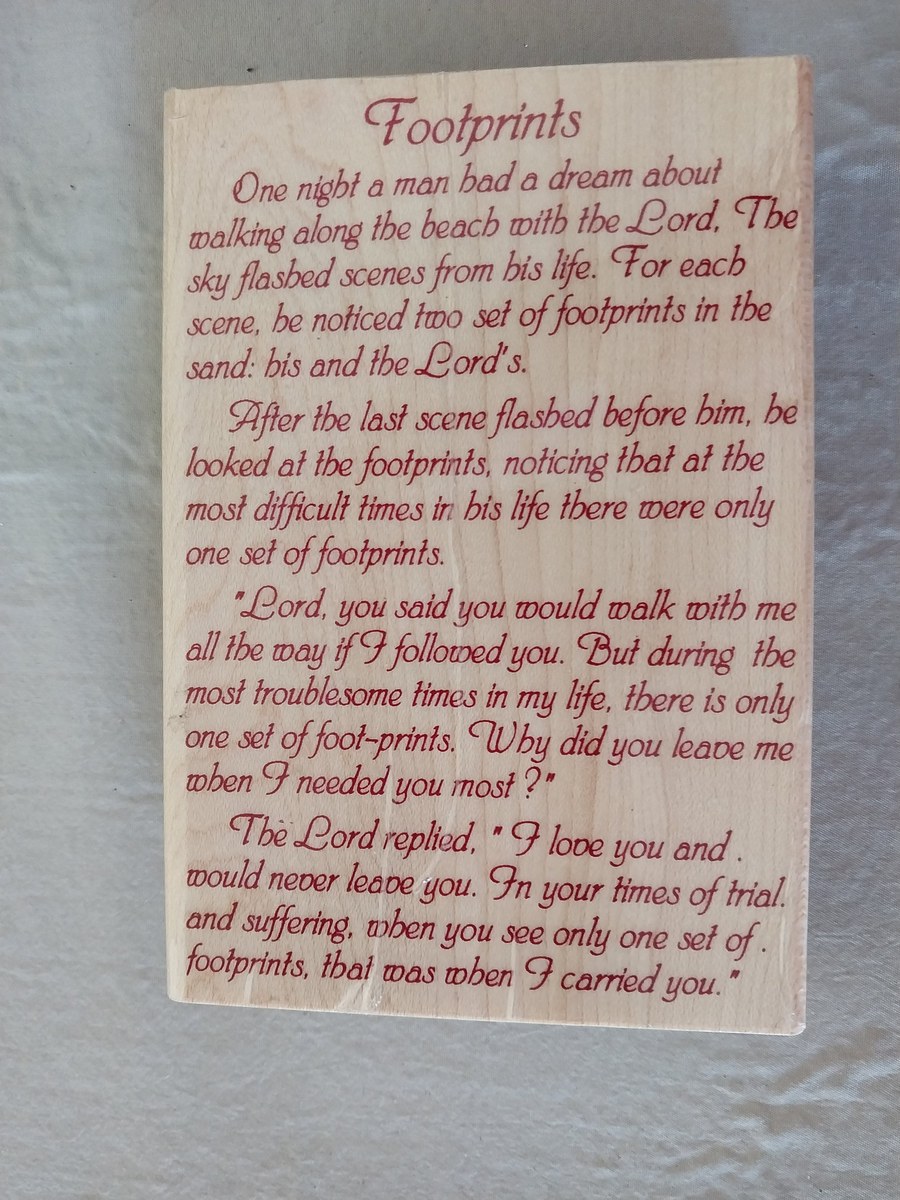 Footprints
One night a man had a dream about
walking along the beach with the Lord, The
sky flashed scenes from his life. For each
scene, he noticed two set of footprints in the
sand: his and the Lord's.
After the last scene flashed before him, he
looked at the footprints, noticing that at the
most difficult times in his life there were only
one set of footprints.
"Lord, you said you would walk with me
all the way if I followed you. But during the
most troublesome times in my life, there is only
one set of foot-prints. Why did you leave me
when I needed you most?"
The Lord replied, "I love you and .
would never leave you. In your times of trial.
and suffering, when you see only one set of .
footprints, that was when I carried you."